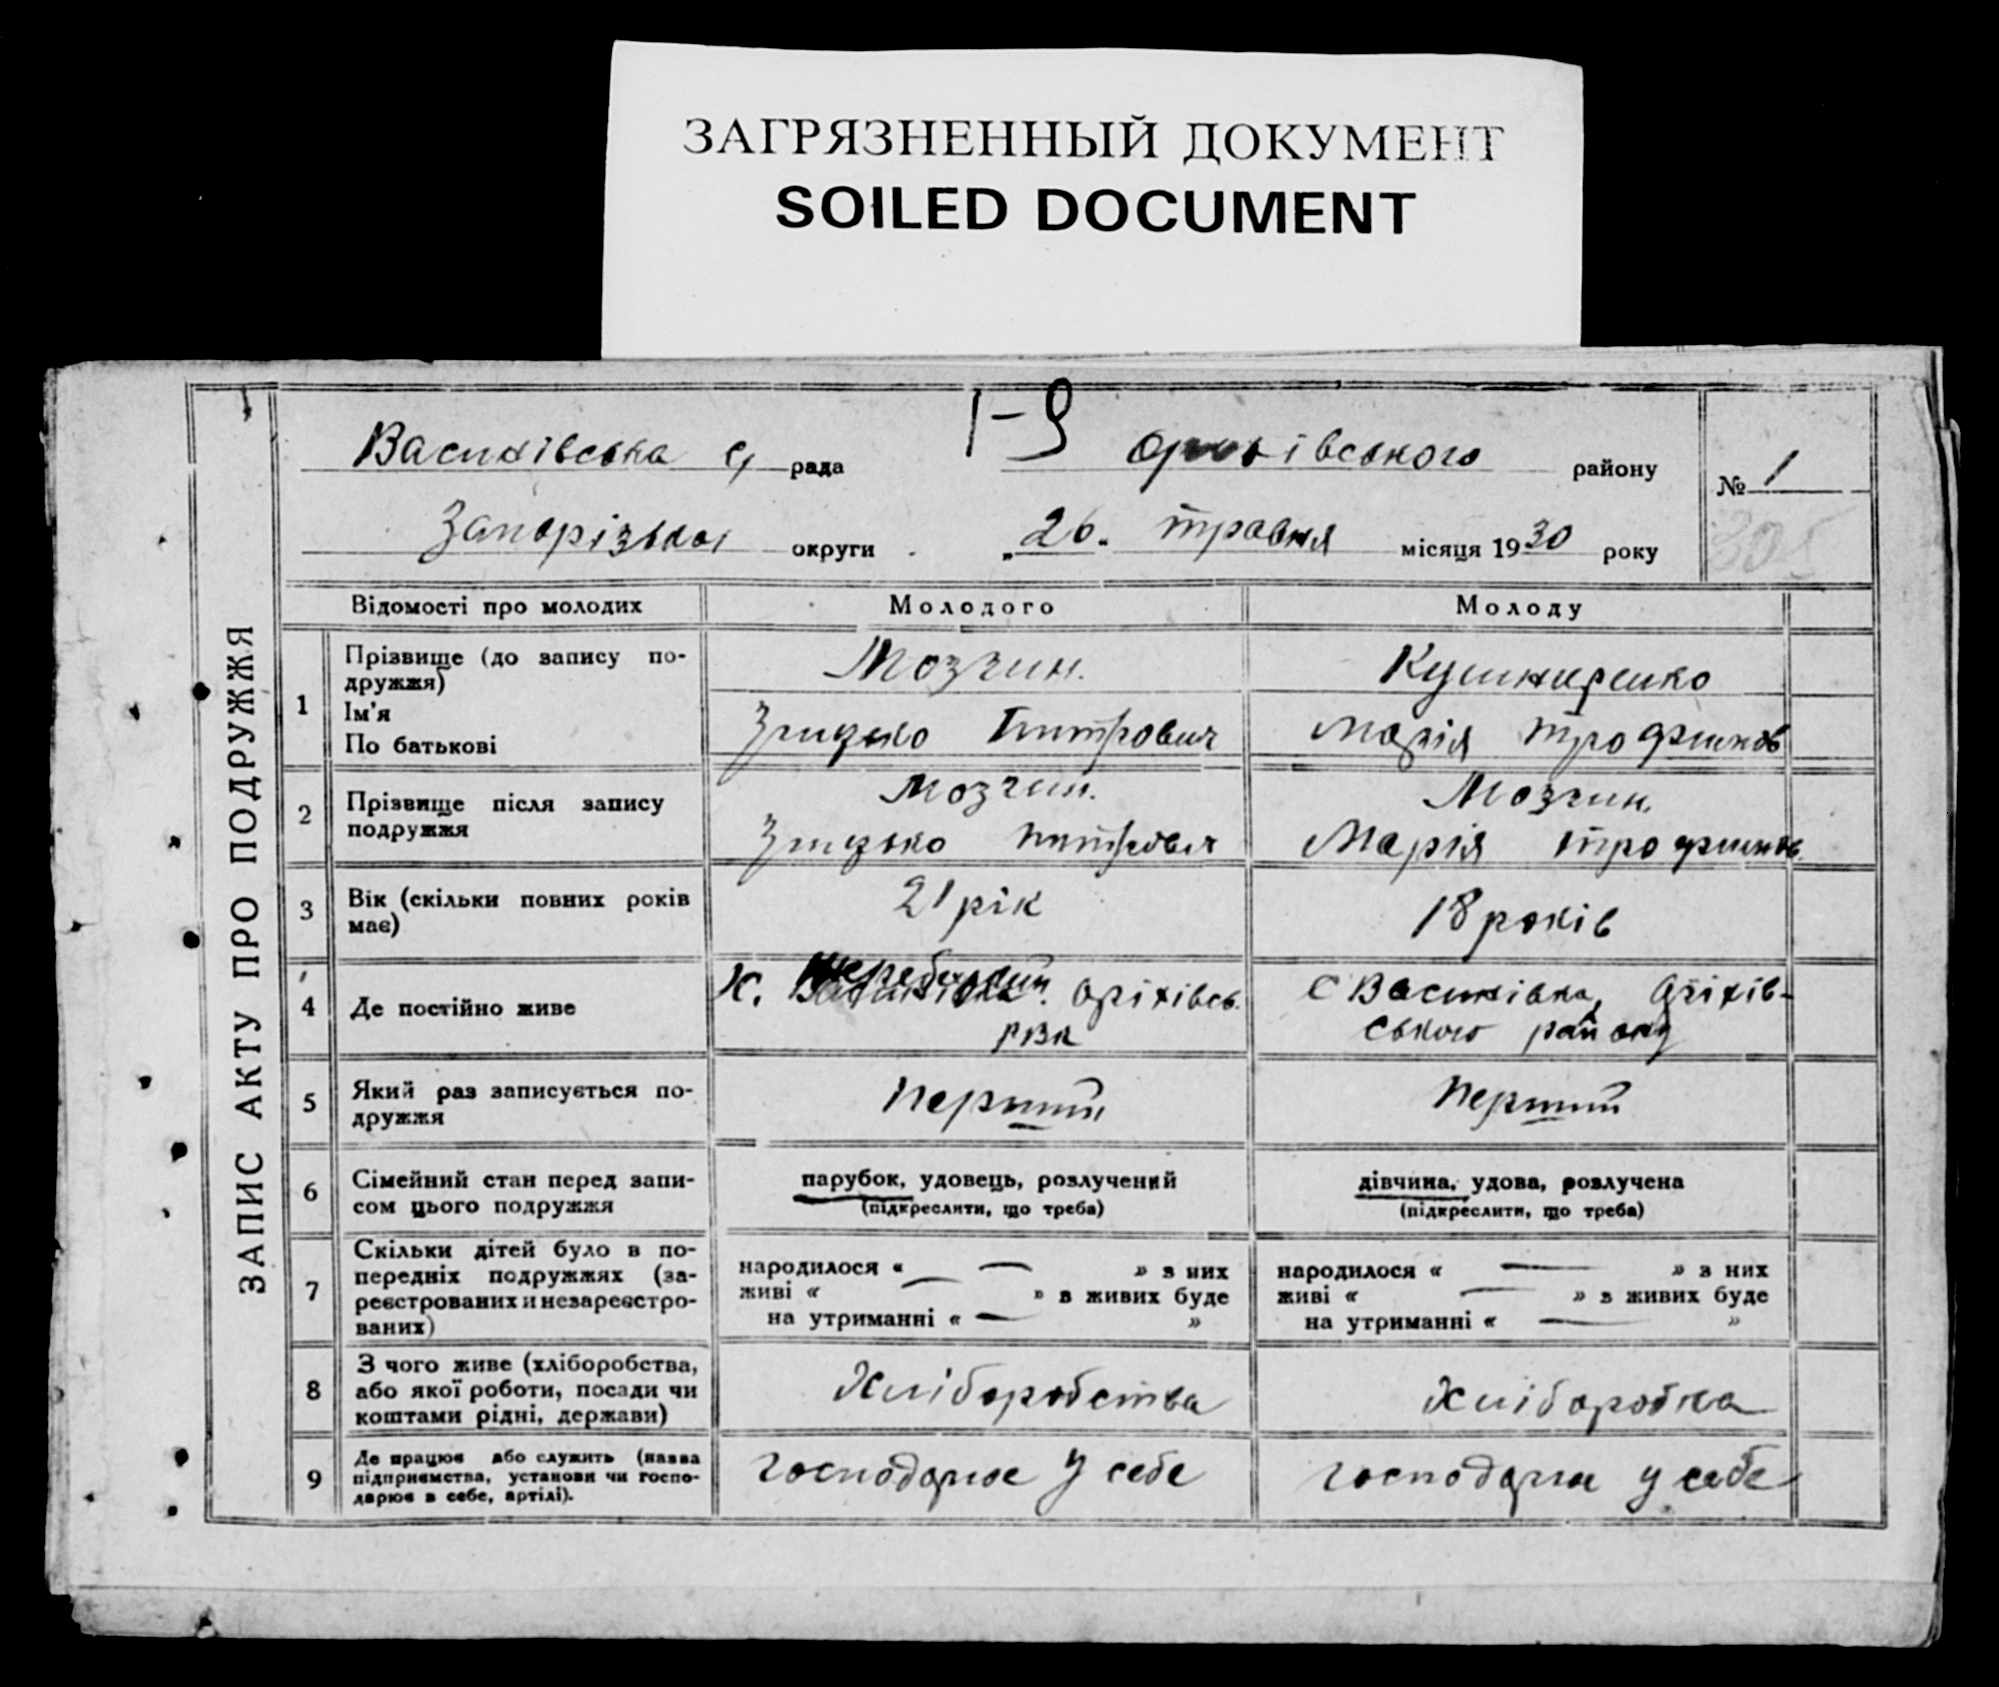 ЗАГРЯЗНЕННЫЙ ДОКУМЕНТ
SOILED DOCUMENT
1-9
Василівська с/ рада Оріхівського району № 1
Запорізької округи „26" травня місяця 1930 року
ЗАПИС АКТУ ПРО ПОДРУЖЖЯ
Відомості про молодих Молодого Молоду
1 Прізвище (до запису по-
дружжя)
Ім'я
По батькові
Мозгин.
Грицько Питрович
Кушниренко
Марія Трофимов
2 Прізвище після запису
подружжя
Мозгин.
Грицько Питрович
Мозгин.
Марія Трофимов
3 Вік (скільки повних років
має)
21 рік
18 років
4 Де постійно живе
х. Оріхівсь.
РВК
с Василівка, Оріхів-
ського району
5 Який раз записується по-
дружжя
Перший
Перший
6 Сімейний стан перед запи-
сом цього подружжя
парубок, удовець, розлучений
(підкреслити, що треба)
дівчина, удова, розлучена
(підкреслити, що треба)
7 Скільки дітей було в по-
передніх подружжях (за-
реєстрованих и незареєстро-
ваних)
народилося « — » з них
живі « — » з живих буде
на утриманні « — »
народилося « — » з них
живі « — » з живих буде
на утриманні « — »
8 З чого живе (хліборобства,
або якої роботи, посади чи
коштами рідні, держави)
Хліборобства
Хліборобка
9 Де працює або служить (назва
підприємства, установи чи госпо-
дарює в себе, артілі).
господарює у себе
господарює у себе